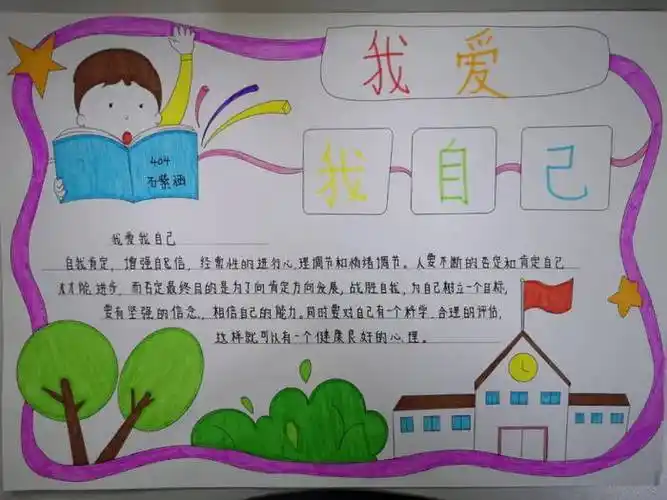 我爱
我自己
404
石紫涵
我爱我自己
自我肯定，增强自信，经常性的进行心理调节和情绪调节。人要不断的否定和肯定自己
才能进步，而否定最终目的是为了向肯定方向发展，战胜自我，为自己树立一个目标，
要有坚强的信念，相信自己的能力。同时要对自己有一个科学、合理的评估，
这样就可以有一个健康良好的心理。